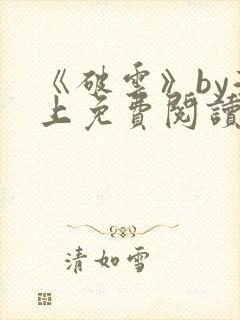 《破雲》by
上免費閱讀
清如雪